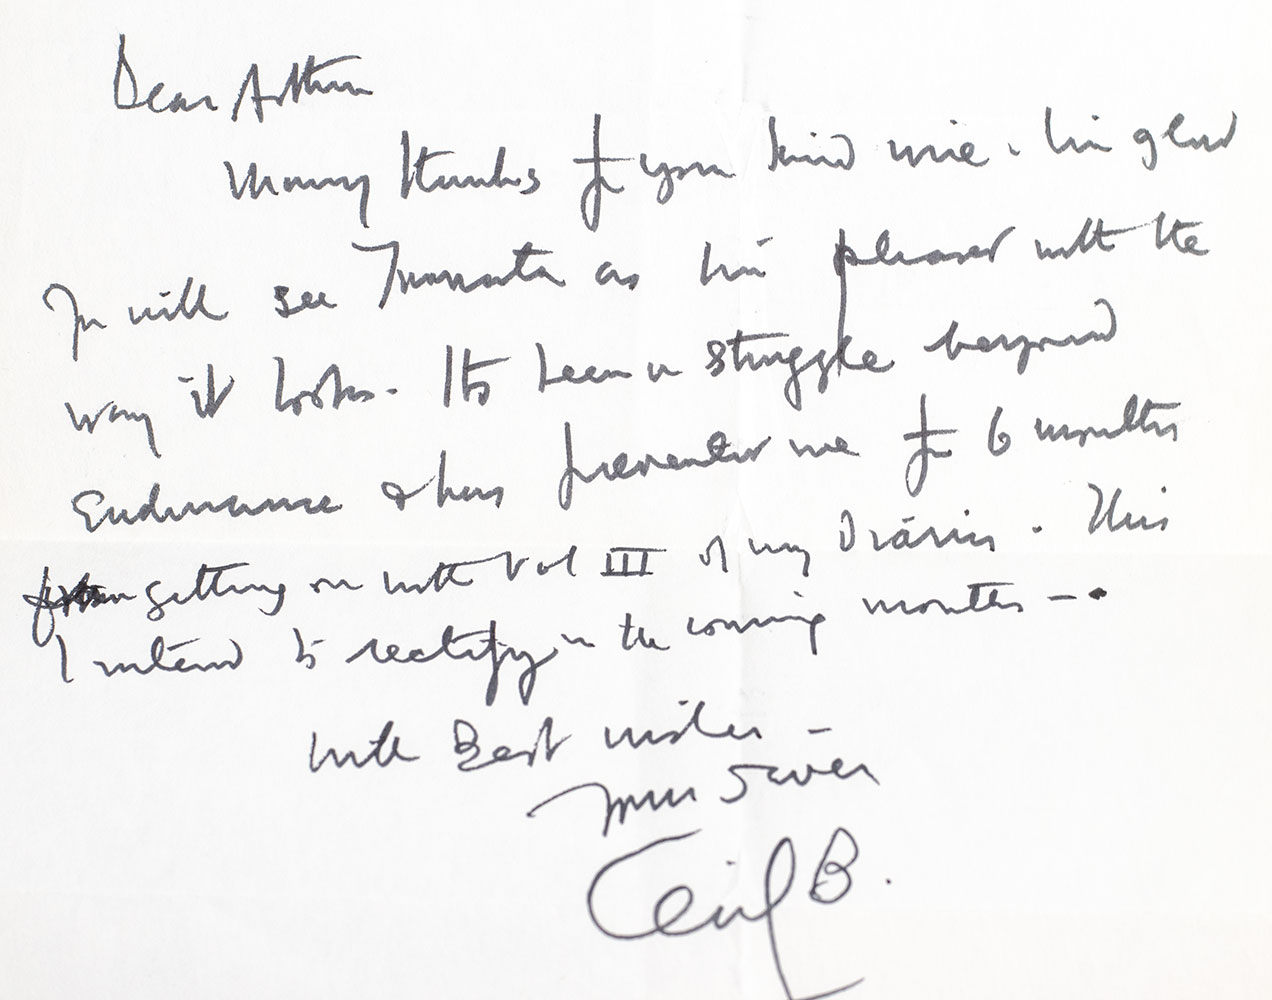 Dear Arthur
Many thanks for your kind wire. I'm glad
you will see Traviata as I'm pleased with the
way it looks. Its been a struggle beyond
Endurance & has prevented me for 6 months
from getting on with Vol III of my Diaries. This
I intend to rectify in the coming months —.
With Best wishes —
Yours Ever
Cecil B.